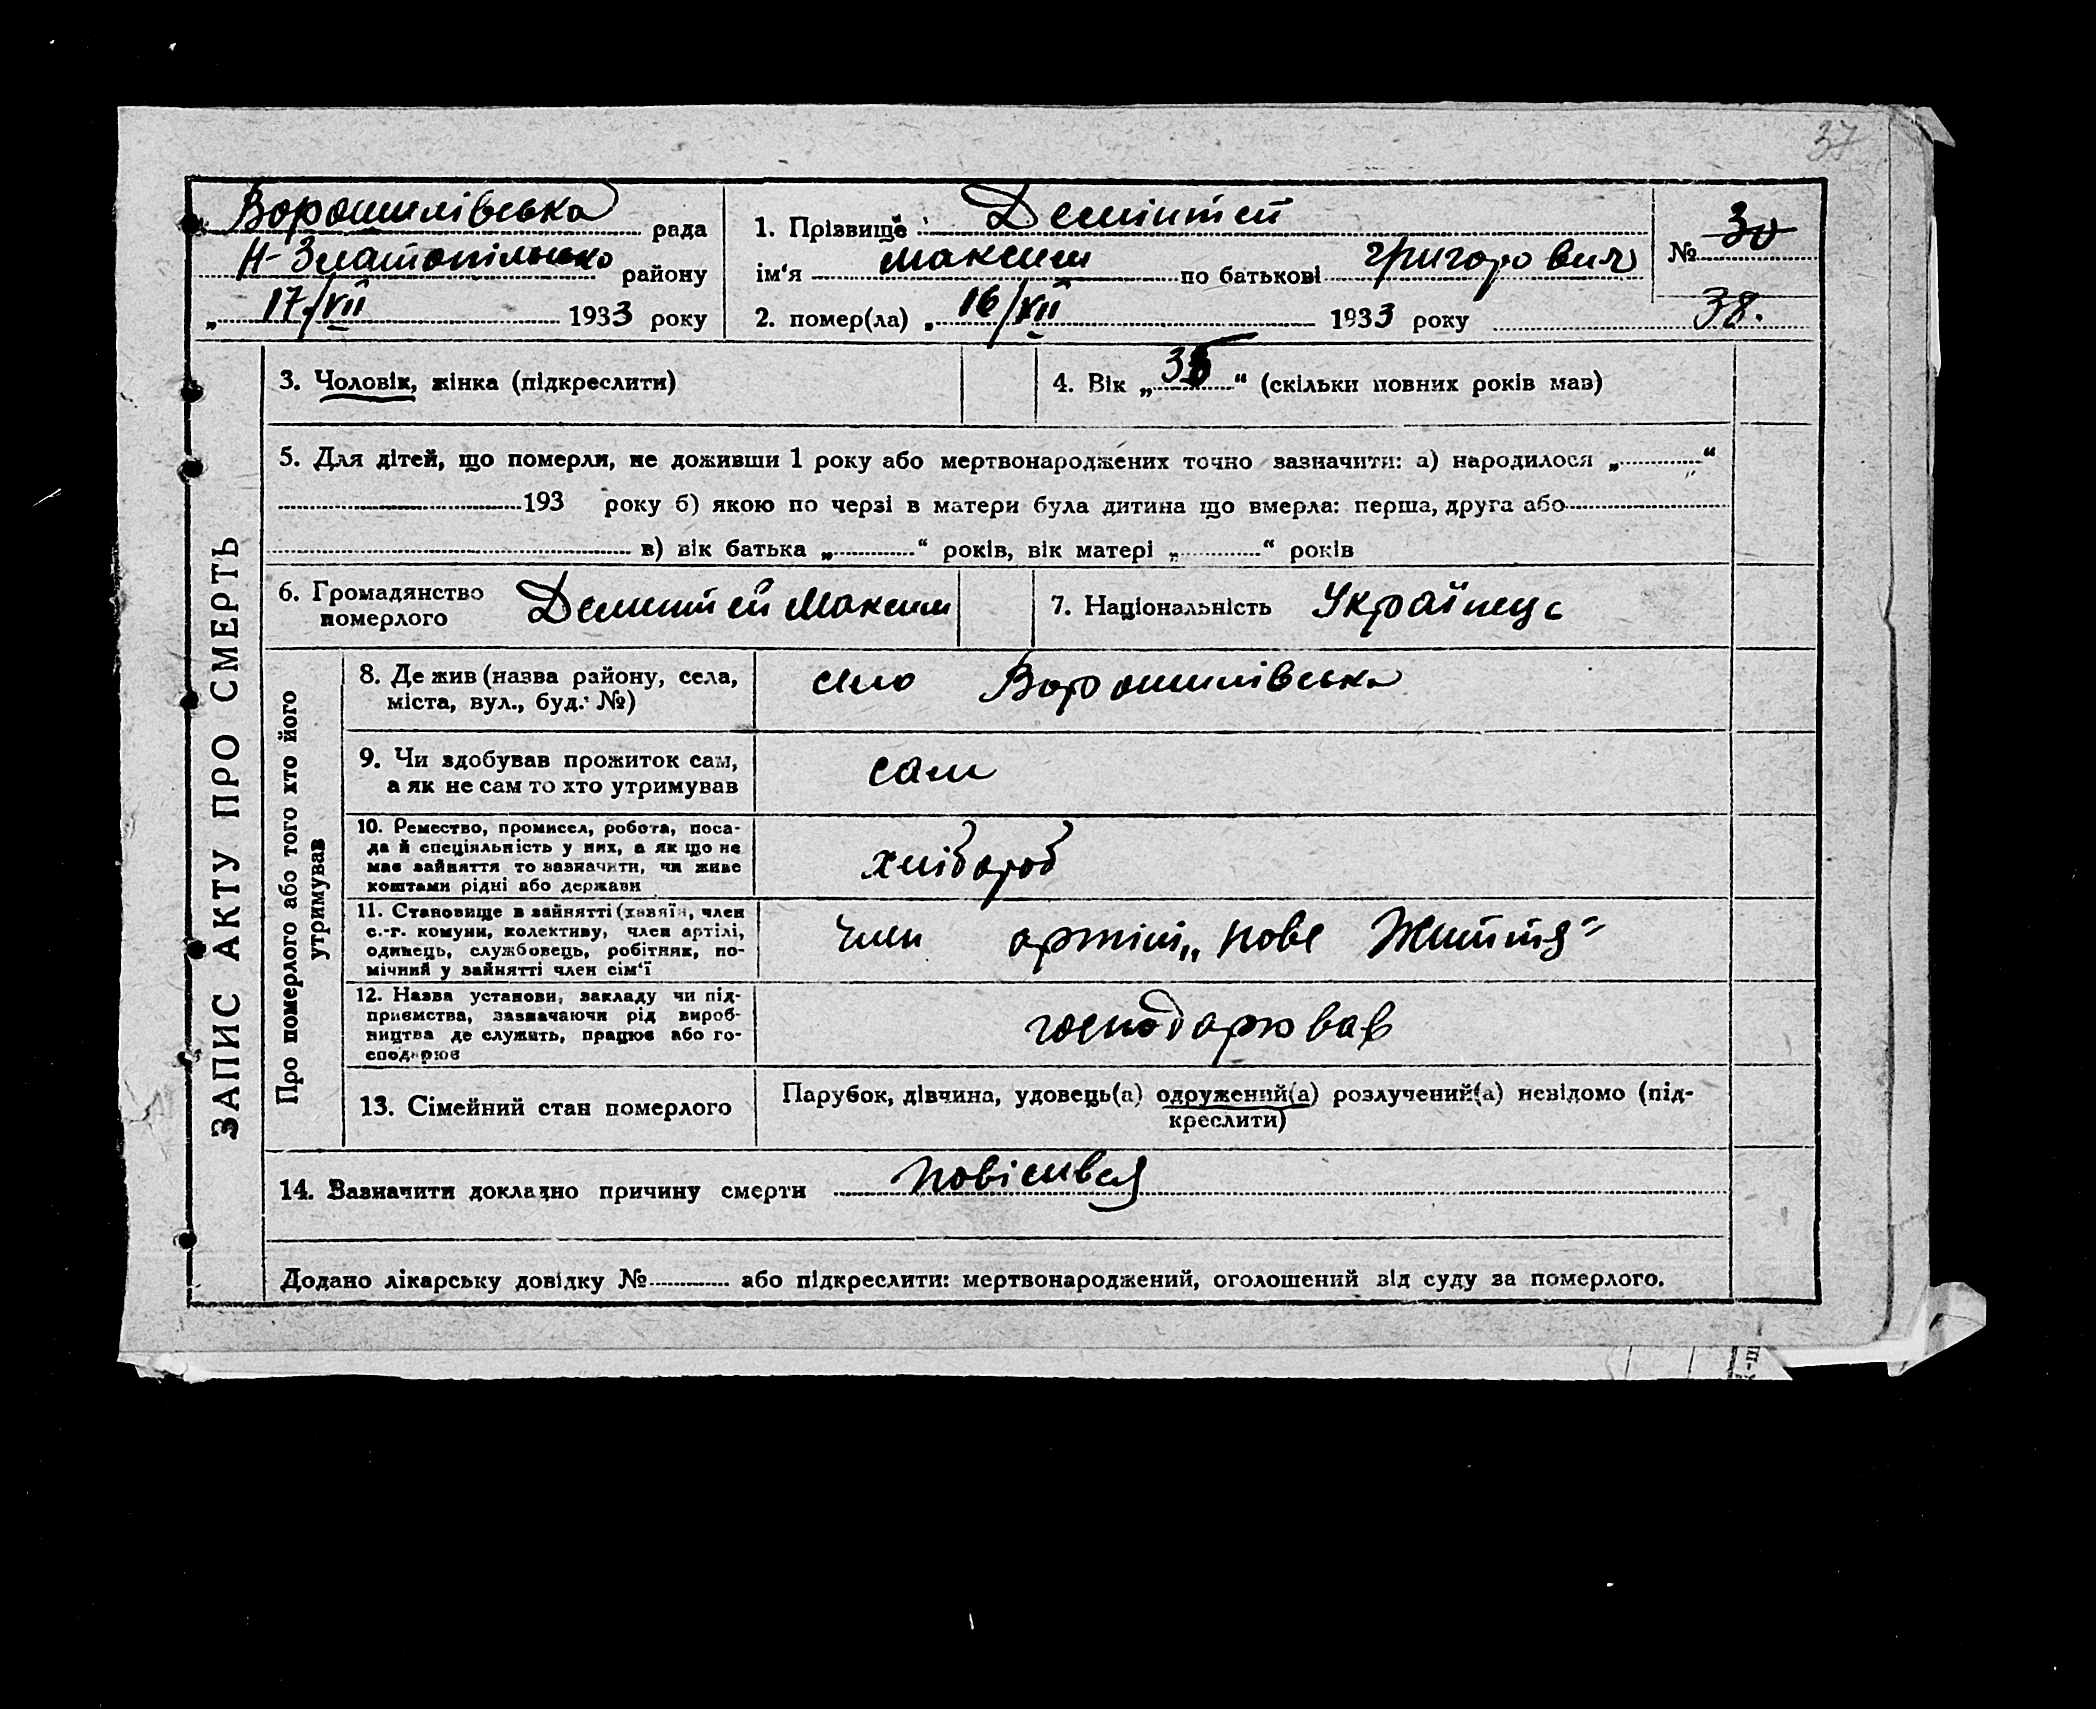 37
Ворошилівська рада
Н-Златопільсько району
„ 17/VII 1933 року
1. Прізвище
ім‘я максим по батькові григорович
2. помер(ла) „ 16/VII 1933 року
№ 30
38.
ЗАПИС АКТУ ПРО СМЕРТЬ
3. Чоловік, жінка (підкреслити)
4. Вік „ “ (скільки повних років мав)
5. Для дітей, що померли, не доживши 1 року або мертвонароджених точно зазначити: а) народилося „ “
193 року б) якою по черзі в матери була дитина що вмерла: перша, друга або
в) вік батька „ “ років, вік матері „ “ років
6. Громадянство
померлого
Максим
7. Національність Українець
Про померлого або того хто його
утримував
8. Де жив (назва району, села,
міста, вул., буд. №)
село Ворошилівська
9. Чи здобував прожиток сам,
а як не сам то хто утримував
сам
10. Ремество, промисел, робота, поса-
да й спеціяльність у них, а як що не
має зайняття то зазначити, чи живе
коштами рідні або держави
хлібороб
11. Становище в зайнятті (хазяїн, член
с.-г. комуни, колективу, член артілі,
одинець, службовець, робітник, по-
мічний у зайнятті член сім‘ї
член артілі „Нове Життя“
12. Назва установи, закладу чи під-
приємства, зазначаючи рід вироб-
ництва де служить, працює або го-
сподарює
господарював
13. Сімейний стан померлого
Парубок, дівчина, удовець(а) одружений(а) розлучений(а) невідомо (під-
креслити)
14. Зазначити докладно причину смерти повісився
Додано лікарську довідку № або підкреслити: мертвонароджений, оголошений від суду за померлого.